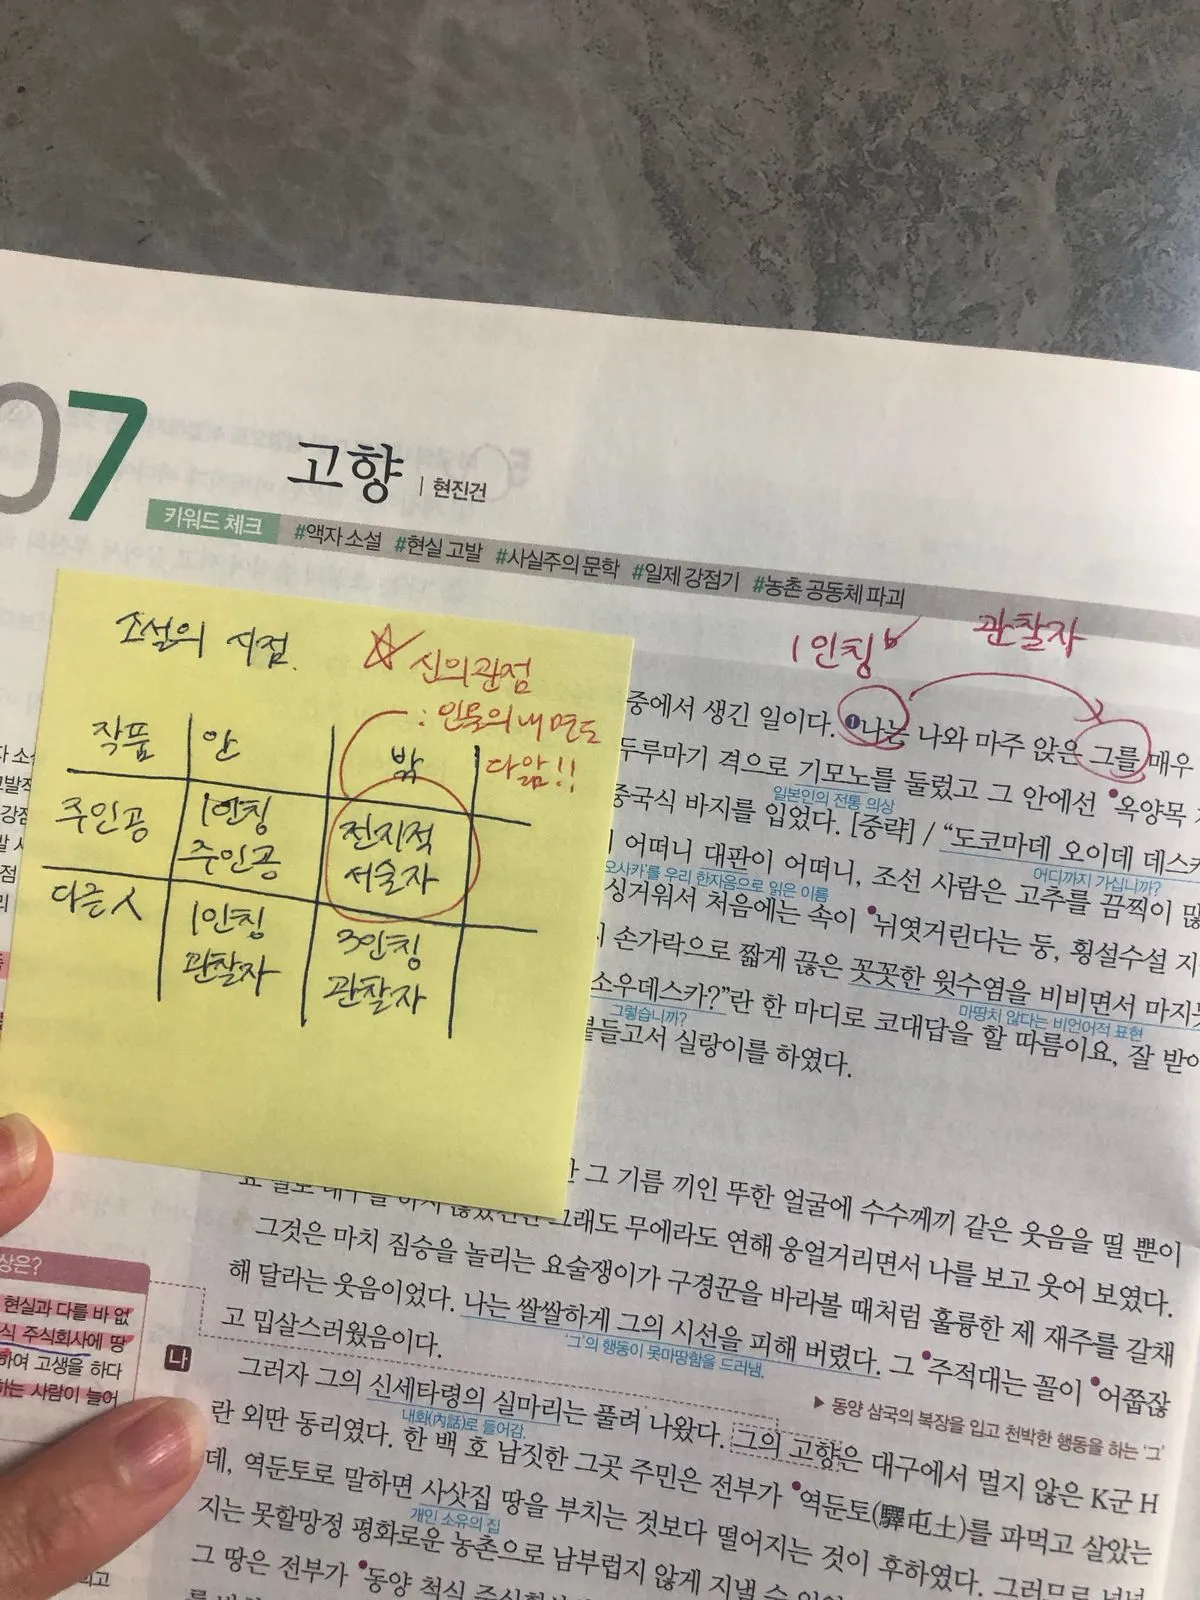 07
고향 | 현진건
키워드 체크 #액자 소설 #현실 고발 #사실주의 문학 #일제 강점기 #농촌 공동체 파괴
소설의 시점.
☆ 신의 관점
: 인물의 내면도
다 앎!!
작품 안 밖
주인공 1인칭 주인공 전지적 서술자
다른 人 1인칭 관찰자 3인칭 관찰자
1인칭 관찰자
중에서 생긴 일이다. ❶나는 나와 마주 앉은 그를 매우
두루마기 격으로 기모노를 둘렀고 그 안에선 옥양목
일본인의 전통 의상
중국식 바지를 입었다. [중략] / “도코마데 오이데 데스카
어디까지 가십니까?
어떠니 대판이 어떠니, 조선 사람은 고추를 끔찍이 많
오사카'를 우리 한자음으로 읽은 이름
싱거워서 처음에는 속이 뉘엿거린다는 둥, 횡설수설 지
손가락으로 짧게 끊은 꼿꼿한 윗수염을 비비면서 마지못
마땅치 않다는 비언어적 표현
소우데스카?”란 한 마디로 코대답을 할 따름이요, 잘 받아
그렇습니까?
곁들고서 실랑이를 하였다.
그 기름 끼인 뚜한 얼굴에 수수께끼 같은 웃음을 띨 뿐이
그래도 무에라도 연해 웅얼거리면서 나를 보고 웃어 보였다.
그것은 마치 짐승을 놀리는 요술쟁이가 구경꾼을 바라볼 때처럼 훌륭한 제 재주를 갈채
해 달라는 웃음이었다. 나는 쌀쌀하게 그의 시선을 피해 버렸다. 그 주적대는 꼴이 어쭙잖
'그'의 행동이 못마땅함을 드러냄.
고 밉살스러웠음이다.
▶ 동양 삼국의 복장을 입고 천박한 행동을 하는 '그'
나
그러자 그의 신세타령의 실마리는 풀려 나왔다. 그의 고향은 대구에서 멀지 않은 K군 H
내화(內話)로 들어감.
란 외딴 동리였다. 한 백 호 남짓한 그곳 주민은 전부가 역둔토(驛屯土)를 파먹고 살았는
데, 역둔토로 말하면 사삿집 땅을 부치는 것보다 떨어지는 것이 후하였다. 그러므로 넉넉
개인 소유의 집
지는 못할망정 평화로운 농촌으로 남부럽지 않게 지낼 수
그 땅은 전부가 동양 척식 주식회사
상은?
현실과 다를 바 없
식 주식회사에 땅
하여 고생을 하다
하는 사람이 늘어